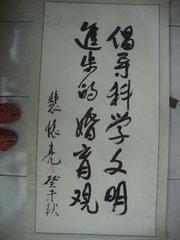 倡导科学文明
進步的婚育观
裴怀亮
癸未秋